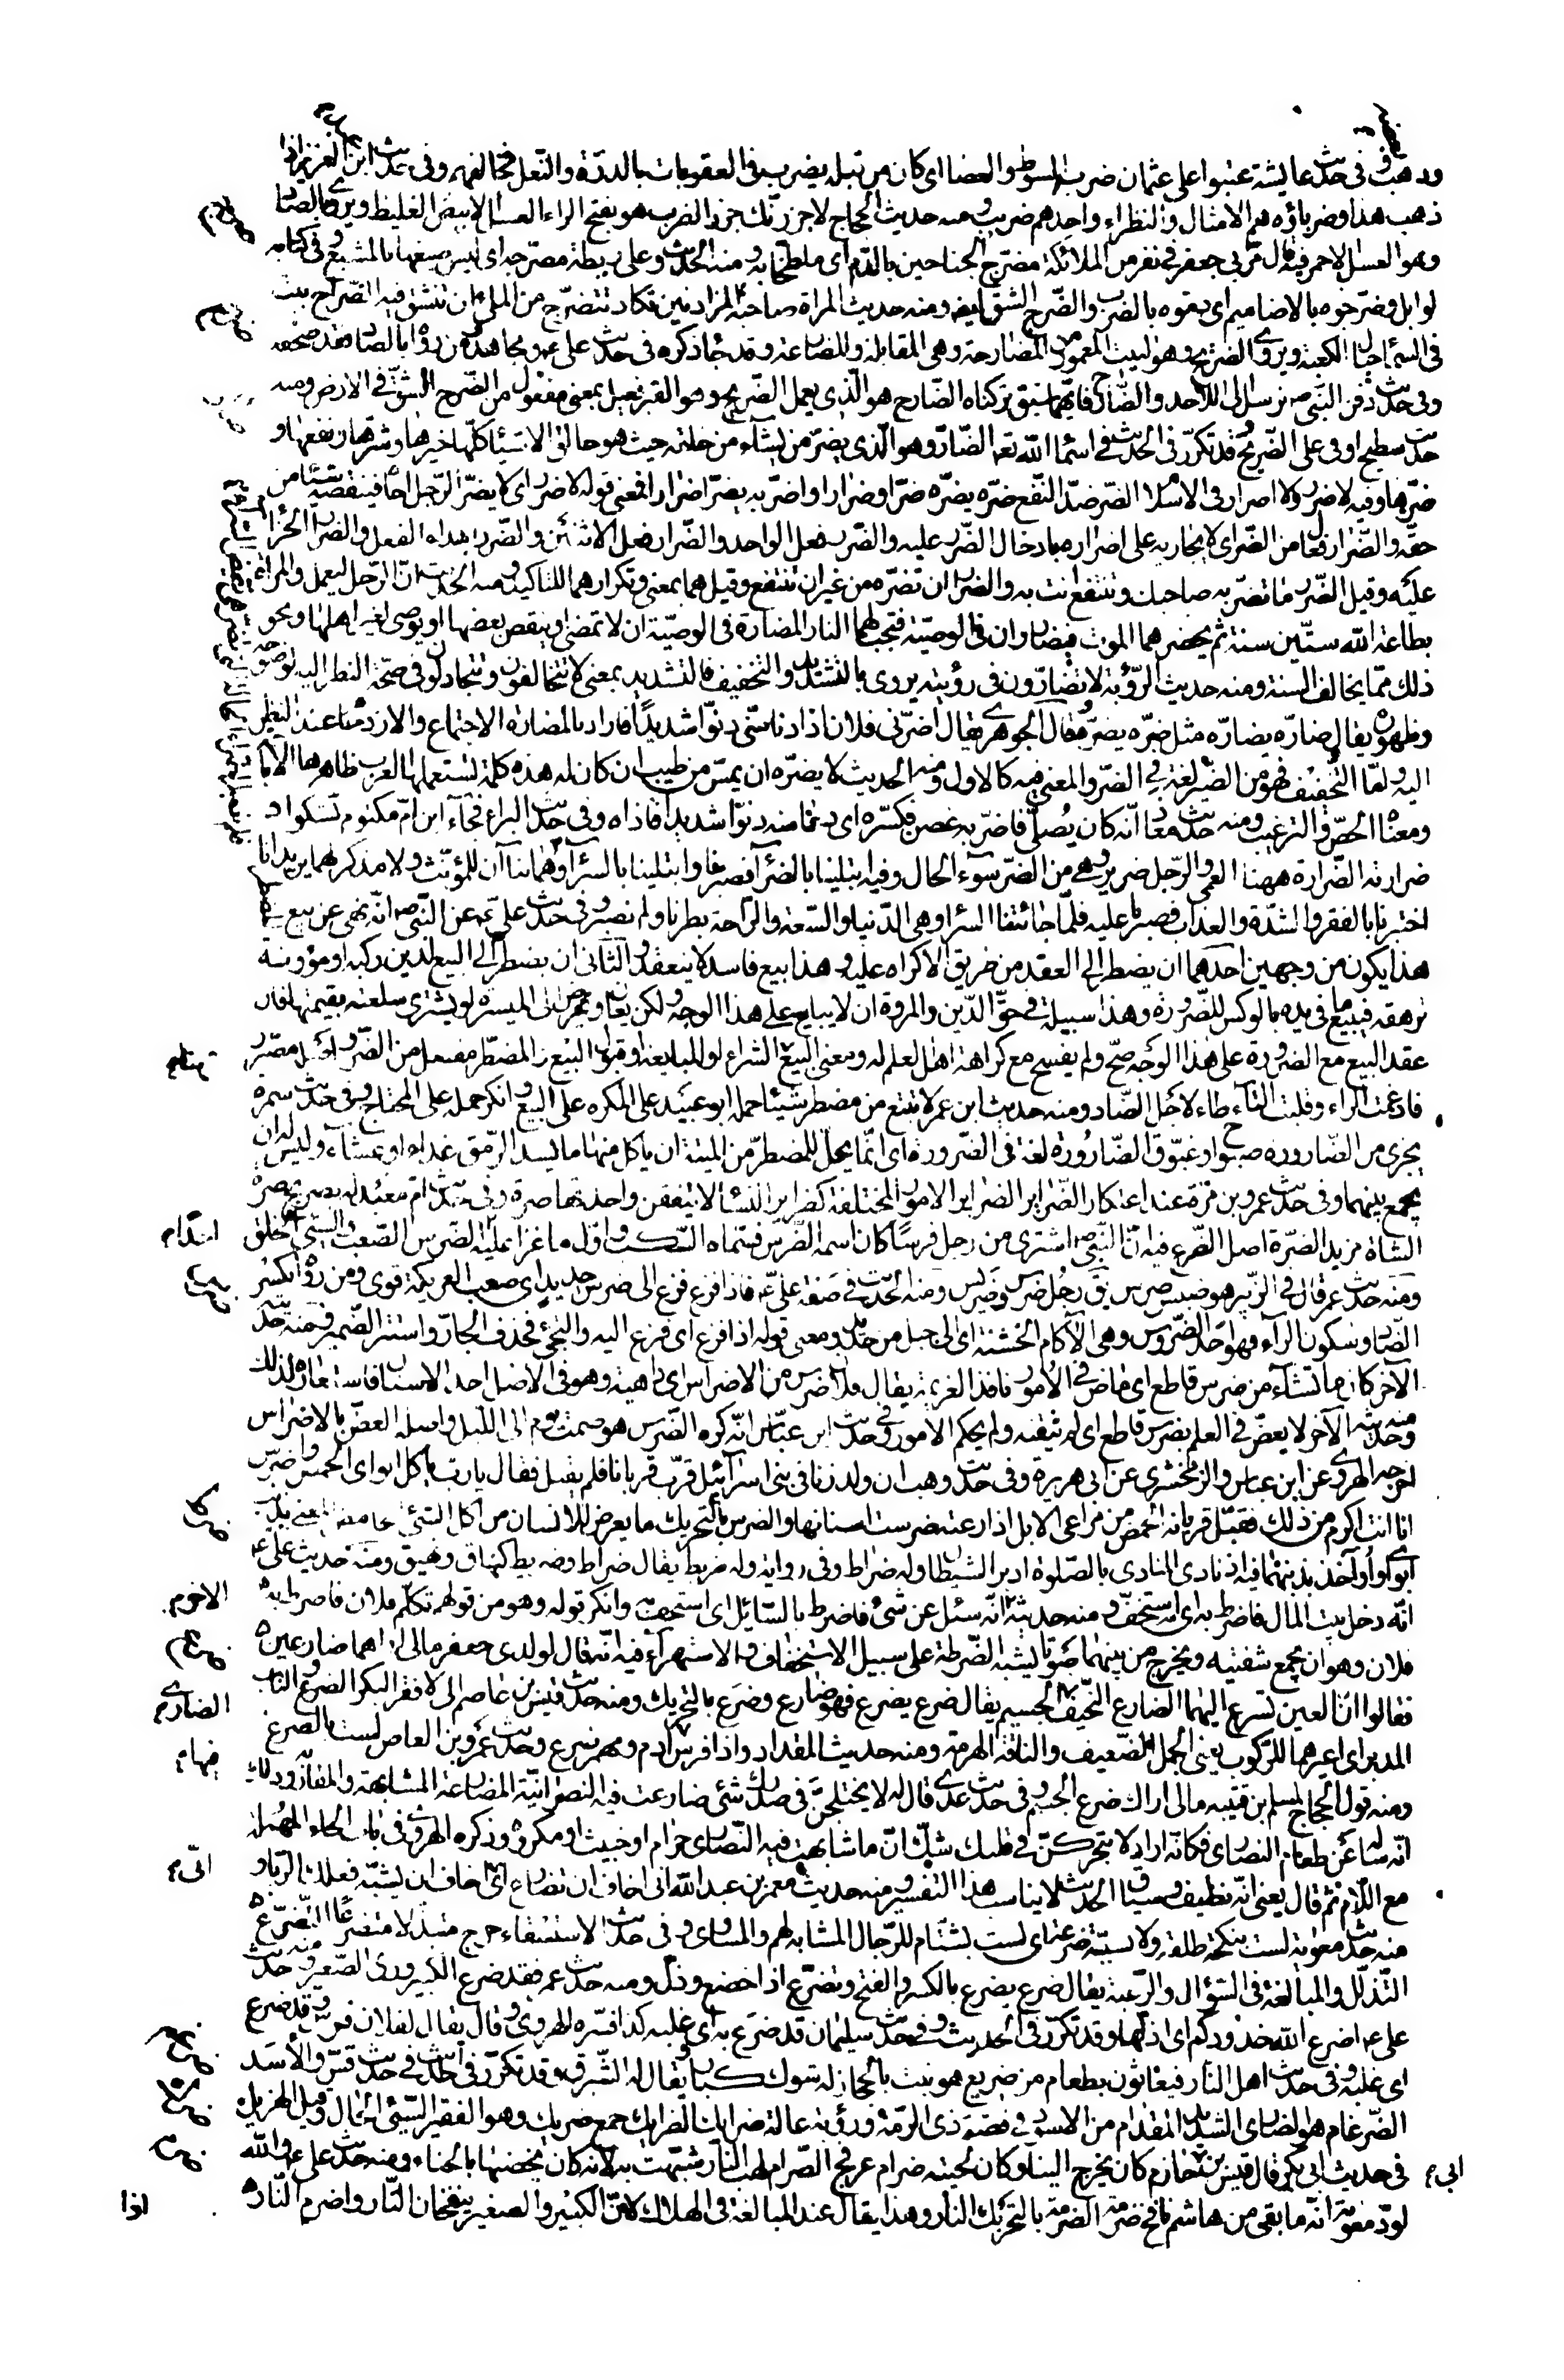 ودهب وفى حدث عايشة عتبوا على عثمان ضربة السوط والعصا اى كان من قبله يضرب فى العقوبات بالدرة والنعل فخالفهم وفى حدث ابن العزيز اذا
ذهب هذا وضرباؤه هم الامثال والنظراء واحدهم ضريب ومنه حديث الحجاج لاجزرنك جزر الضرب هو بفتح الراء العسل الابيض الغليظ ويروى بالصاد
وهو العسل الاحمر فيه قال مر بى جعفر فى نفر من الملائكة مضرج الجناحين بالدم اى ملطخا به ومنه الحدث وعلى ريطة مضرجة اى ليس صبغها بالمشبع وفى كتابه
لوابل وضرجوه بالاضاميم اى دموه بالضرب والضرج الشق ايضا ومنه حديث المراة صاحبة المزادتين تكاد تتضرج من الملء اى تنشق فيه الضراح بيت
فى السماء حيال الكعبة ويروى الضريح وهو البيت المعمور من المضارحة وهى المقابلة والمضارعة وقد جاء ذكره فى حدث على ومجاهد ومن رواه بالصاد فقد صحف
وفى حدث دفن النبى ص نرسل الى اللاحد والضارح فايهما سبق تركناه الضارح هو الذى يعمل الضريح وهو القبر فعيل بمعنى مفعول من الضرح الشق فى الارض ومنه
حدث سطيح اوفى على الضريح وقد تكرر فى الحدث فى اسماء الله تعالى الضار وهو الذى يضر من يشاء من خلقه حيث هو خالق الاشياء كلها خيرها وشرها ونفعها و
ضرها وفيه لا ضرر ولا اضرار فى الاسلام الضر ضد النفع ضره يضره ضرا وضرارا واضر به يضر اضرارا فمعنى قوله لا ضرر اى لا يضر الرجل اخاه فينقصه شيئا من
حقه والضرار فعال من الضر اى لا يجازيه على اضراره بادخال الضرر عليه والضرر فعل الواحد والضرار فعل الاثنين والضرر ابتداء الفعل والضرار الجزاء
عليه وقيل الضرر ما تضر به صاحبك وتنتفع انت به والضرار ان تضره من غير ان تنتفع وقيل هما بمعنى وتكرارهما للتاكيد ومنه الحدث ان الرجل ليعمل والمراة
بطاعة الله ستين سنة ثم يحضرهما الموت فيضاران فى الوصية فتجب لهما النار المضارة فى الوصية ان لا تمضى او ينقص بعضها او يوصى لغير اهلها ونحو
ذلك مما يخالف السنة ومنه حديث الرؤية لا تضارون فى رؤيته يروى بالتشديد والتخفيف فالتشديد بمعنى لا تتخالفون وتتجادلون فى صحة النظر اليه لوضوحه
وظهوره يقال ضاره يضاره مثل ضره يضره وقال الجوهرى يقال اضرنى فلان اذا دنا منى دنوا شديدا فاراد بالمضارة الاجتماع والازدحام عند النظر
اليه واما التخفيف فهو من الضير لغة فى الضر والمعنى فيه كالاول ومنه الحديث لا يضره ان يمس من طيب ان كان له هذه كلمة تستعملها العرب ظاهرها الاباحة
ومعناه الحض والترغيب ومنه حدث معاذ انه كان يصلى فاضر به غصن فكسره اى دنا منه دنوا شديدا فاذاه وفى حدث البراء فجاء ابن ام مكتوم تشكو ا
ضرارته الضرارة ههنا العمى والرجل ضرير وهى من الضر سوء الحال وفيه ابتلينا بالضراء فصبرنا وابتلينا بالسراء وهما بناآن للمؤنث ولا مذكر لهما يريد انا
اختبرنا بالفقر والشدة والعذاب فصبرنا عليه فلما جائتنا السراء وهى الدنيا والسعة والراحة بطرنا ولم نصبر وفى حدث على عن النبى ص انه نهى عن بيع
هذا يكون من وجهين احدهما ان يضطر الى العقد من طريق الاكراه عليه وهذا بيع فاسد لا ينعقد والثانى ان يضطر الى البيع لدين ركبه او مؤونة
ترهقه فيبيع ما فى يده بالوكس للضرورة وهذا سبيله فى حق الدين والمروة ان لا يبايع على هذا الوجه ولكن يعاون ويقرض الى الميسرة او يشترى سلعته بقيمتها فان
عقد البيع مع الضرورة على هذا الوجه صح ولم يفسخ مع كراهة اهل العلم له ومعنى البيع الشراء او المبايعة او قبول البيع والمضطر مفتعل من الضر واصله مضترر
فادغمت الراء وقلبت التاء طاء لاجل الضاد ومنه حديث ابن عمر لا تبتع من مضطر شيئا حمله ابو عبيد على المكره على البيع وانكر حمله على المحتاج وفى حدث سمرة
يجزى من الضارورة صبوح او غبوق الضارورة لغة فى الضرورة اى انما يحل للمضطر من الميتة ان ياكل منها ما يسد الرمق غداء او عشاء وليس له ان
يجمع بينهما وفى حدث عمرو بن مرة عند اعتكار الضراير الضراير الامور المختلفة كضراير النساء لا يتفقن واحدتها ضرة وفى حدث ام معبد له بصريح ضرة
الشاة مزبد الضرة اصل الضرع فيه ان النبى ص اشترى من رجل فرسا كان اسمه الضرس فسماه السكب واول ما غزا عليه الضرس الصعب السيئ الخلق
ومنه حدث عمر قال فى الزبير هو ضبس ضرس يق رجل ضرس وضريس ومنه الحدث فى صفة على فاذا فزع فزع الى ضرس حديد اى صعب العريكة قوى ومن رواه بكسر
الضاد وسكون الراء فهو احد الضروس وهى الآكام الخشنة اى الى جبل من حديد ومعنى قوله اذا فزع اى فزع اليه والتجئ فحذف الجار واستتر الضمير ومنه حدثه
الآخر كان ما تشاء من ضرس قاطع اى ماض فى الامور نافذ العزيمة يقال فلان ضرس من الاضراس اى داهية وهو فى الاصل احد الاسنان فاستعاره لذلك
ومنه حدثه الآخر لا يعض فى العلم بضرس قاطع اى لم يتقنه ولم يحكم الامور وفى حدث ابن عباس انه كره الضرس هو صمت يوم الى الليل واصله العض بالاضراس
اخرجه الهروى عن ابن عباس والزمخشرى عن ابى هريرة وفى حدث وهب ان ولد زنا فى بنى اسرآئيل قرب قربانا فلم يقبل فقال يارب ياكل ابواى الحمض واضرس
انا انت اكرم من ذلك فقبل قربانه الحمض من مراعى الابل اذا رعته ضرست اسنانها والضرس بالتحريك ما يعرض للانسان من اكل الشئ الحامض المعنى يذنب
ابواى واؤآخذ بذنبهما فيه اذ نادى المنادى بالصلوة ادبر الشيطان وله ضراط وفى رواية وله ضريط يقال ضراط وضريط كنهاق ونهيق ومنه حديث على
انه دخل بيت المال فاضرط به اى استخف ومنه حديثه انه سئل عن شئ فاضرط بالسائل اى استخف به وانكر قوله وهو من قولهم تكلم فلان فاضرط به
فلان وهو ان يجمع شفتيه ويخرج من بينهما صوتا يشبه الضرطة على سبيل الاستخفاف والاستهزآء فيه انه قال لولدى جعفر مالى اراهما ضارعين
فقالوا ان العين تسرع اليهما الضارع النحيف الجسم يقال ضرع يضرع فهو ضارع وضرع بالتحريك ومنه حدث قيس بن عاصم انى لافقر البكر الضرع والناب
المدبر اى اعيرهما للركوب يعنى الجمل الضعيف والناقة الهرمة ومنه حديث المقداد واذا فرس آدم ومهر ضرع وحدث عمرو بن العاص لست بالضرع
ومنه قول الحجاج لمسلم بن قتيبة مالى اراك ضرع الجسم وفى حدث عدى قال له لا يختلجن فى صدرك شئ ضارعت فيه النصرانية المضارعة المشابهة والمقاربة وذلك
انه سأله عن طعام النصارى فكانه اراد لا يتحركن فى قلبك شك ان ما شابهت فيه النصارى حرام او خبيث او مكروه وذكره الهروى فى باب الحاء المهملة
مع اللام ثم قال يعنى انه نظيف وسياق الحدث لا يناسب هذا التفسير ومنه حديث معمر بن عبد الله انى اخاف ان تضارع اى اخاف ان يشبه فعلك الرياء و
منه حدث معوية لست بنكحة طلقة ولا بسببة ضرعة اى لست بشتام للرجال المشابه لهم والمساوى وفى حدث الاستسقاء خرج متبذلا متضرعا التضرع
التذلل والمبالغة فى السؤال والرغبة يقال ضرع يضرع بالكسر والفتح وتضرع اذا خضع وذل ومنه حدث عمر فقد ضرع الكبير ورق الصغير ومنه حدث
على اضرع الله خدودكم اى اذلها وقد تكرر فى الحديث وفى حدث سليمان قد ضرع به اى غلبه كذا فسره الهروى وقال يقال لفلان فرس قد ضرع به
اى غلبه وفى حدث اهل النار فيغاثون بطعام من ضريع هو نبت بالحجاز له شوك كبار يقال له الشبرق وقد تكرر فى الحدث فى حدث قس والاسد
الضرغام هو الضارى الشديد المقدام من الاسود فى قصة ذى الرمة ورؤبة عالة ضرائك الضرائك جمع ضريك وهو الفقير السيئ الحال وقيل الهزيل
فى حديث ابى بكر قال قيس بن حازم كان يخرج الينا وكان لحيته ضرام عرفج الضرام لهب النار شبهت به لانه كان يخضبها بالحناء ومنه حدث على والله
لود معوية انه ما بقى من هاشم نافخ ضرمة الضرمة بالتحريك النار وهذا يقال عند المبالغة فى الهلاك لان الكبير والصغير ينفخان النار واضرم النار
اذا